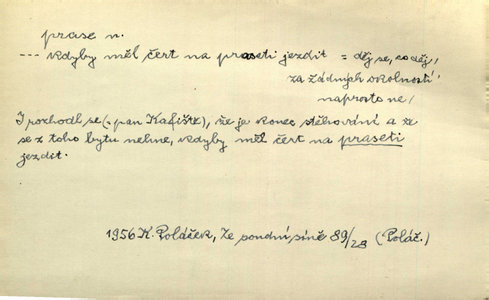 prase n.
--- kdyby měl čert na praseti jezdit = děj se, co děj,
za žádných okolností,
naprosto ne,
I rozhodl se (= pan Kafiště), že je konec stěhování a že
se z toho bytu nehne, kdyby měl čert na praseti
jezdit.
1956 K. Poláček, Ze soudní síně 89/28 (Poláč.)